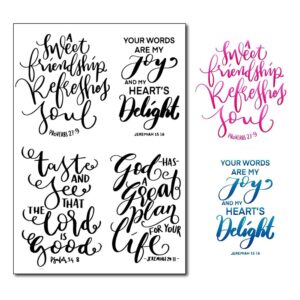 A
Sweet
friendship
Refreshes
Soul
PROVERBS 27:9
YOUR WORDS
ARE MY
Joy
AND MY
HEART'S
Delight
JEREMIAH 15:16
taste
AND
See
THAT
THE
Lord
IS
Good
Psalm 34:8
God
HAS
A
Great
plan
FOR YOUR
life
-JEREMIAH 29:11-
A
Sweet
friendship
Refreshes
Soul
PROVERBS 27:9
YOUR WORDS
ARE MY
Joy
AND MY
HEART'S
Delight
JEREMIAH 15:16